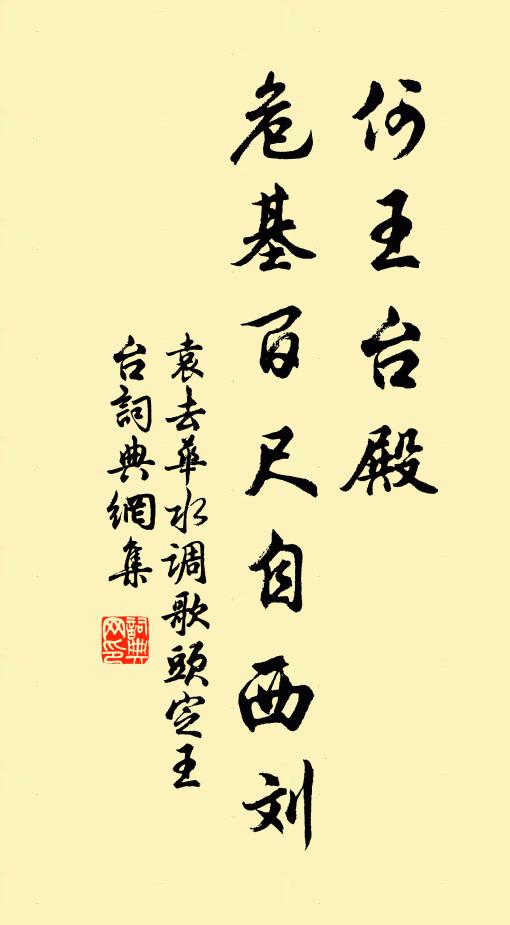 何王台殿
危基百尺自西刘
袁去華水调歌頭定王
台詞典網集
詞典
网印